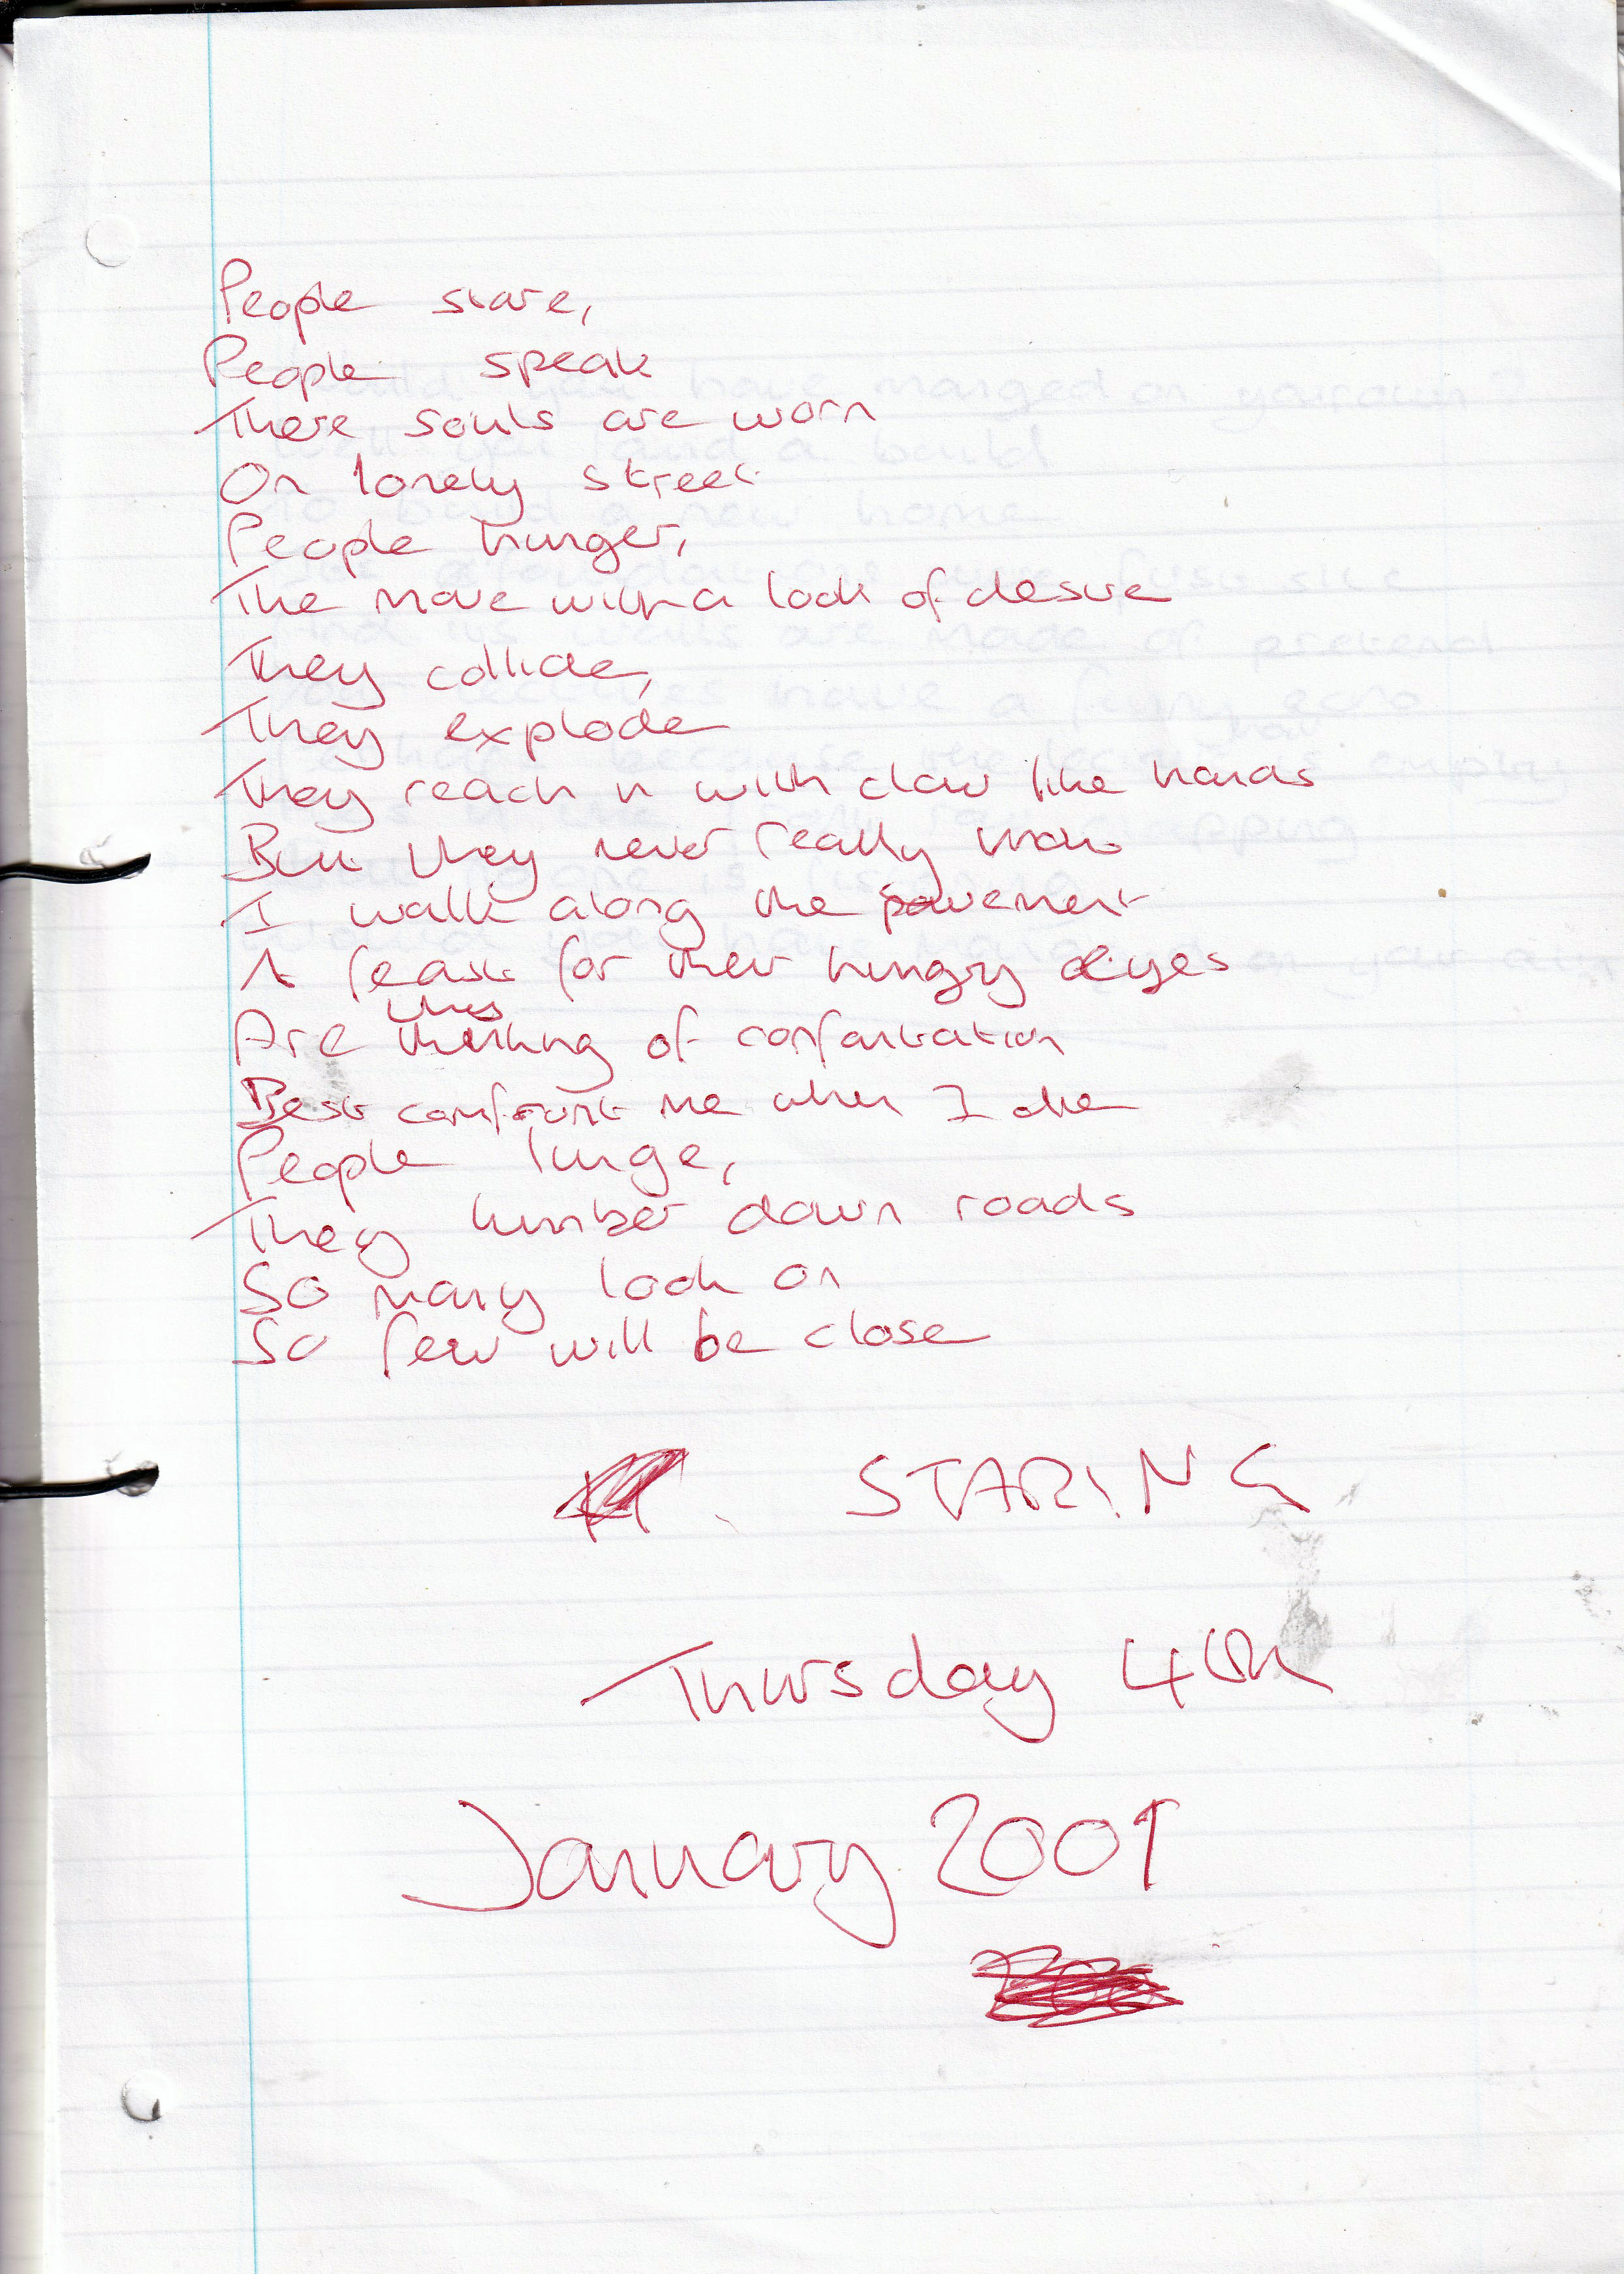 People stare,
People speak
There souls are worn
On lonely street
People hunger,
The move with a look of desire
They collide,
They explode
They reach in with claw like hands
But they never really know
I walk along the pavement
A feast for their hungry eyes
they
Are thinking of confortation
Best confront me when I die
People lunge,
They lumber down roads
So many look on
So few will be close
STARING
Thursday 4th
January 2001